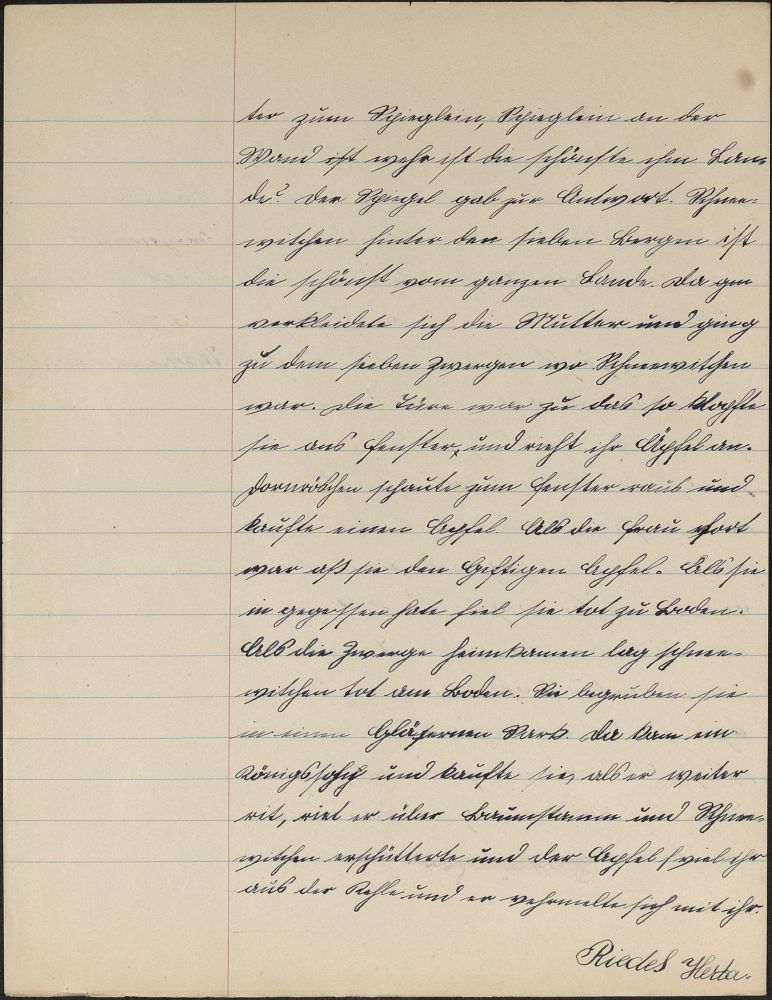 ter zum Spieglein, Spieglein an der
Wand ist wehr ist die schönste ihm Lan-
de? Der Spiegel gab zur Antwort. Schnee-
witchen hinter den sieben Bergen ist
die schönst vom ganzen Lande. Da
verkleidete sich die Mutter und ging
zu dem sieben Zwergen wo Schneewitchen
war. Die Türe war zu das so klopfte
sie ans Fenster, und rieht ihr Äpfel an.
Dornröschen schaute zum Fenster raus und
kaufte einen Apfel Als die Frau fort
war aß sie den Geftigen Apfel. Als sie
in gegessen hate fiel sie tot zu Boden.
Als die Zwerge heimkamen lag schnee-
witchen tot am Boden. Sie begruben sie
in einen Gläsernen Sark. Da kam ein
Königssohn und kaufte sie, als er weiter
rit, riet er über Baumstamm und Schnee-
witchen erschütterte und der Apfel fviel ihr
aus der Kehle und er vehrmelte sich mit ihr.
Riedel Herta.